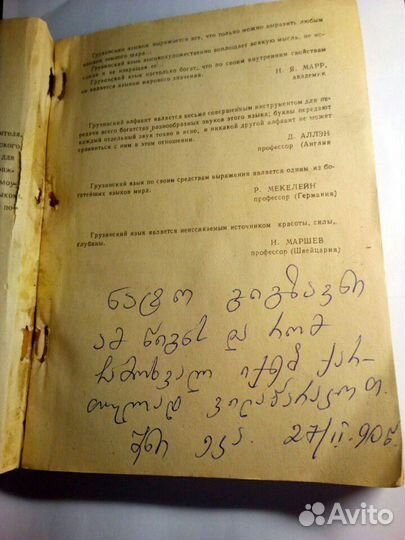 Грузинским языком выражается все, что только можно выразить любым
языком земного шара...
Грузинский язык высокохудожественно воплощает всякую мысль, не ис-
кажая и не извращая ее...
Грузинский язык настолько богат, что по своим внутренним свойствам
он является языком мирового значения.
Н. Я. МАРР,
академик
Грузинский алфавит является весьма совершенным инструментом для пе-
редачи всего богатства разнообразных звуков этого языка; буквы передают
каждый отдельный звук точно и ясно, и никакой другой алфавит не может
сравниться с ним в этом отношении.
Д. АЛЛЭН,
профессор (Англия
Грузинский язык по своим средствам выражения является одним из бо-
гатейших языков мира.
Р. МЕКЕЛЕЙН
профессор (Германия)
Грузинский язык является неиссякаемым источником красоты, силы,
глубины.
Н. МАРШЕВ
профессор (Швейцария)
ნატო გიგზავნი
ამ წიგნს და რომ
ჩამოხვალ იქნებ ქარ-
თულად ვილაპარაკოთ.
შენი ეკა. 27/II.90წ.
Avito